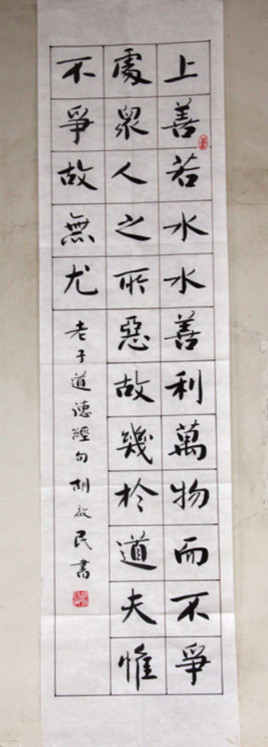 上善若水水善利萬物而不爭
處衆人之所惡故幾於道夫惟
不爭故無尤
老子道德經句 民書